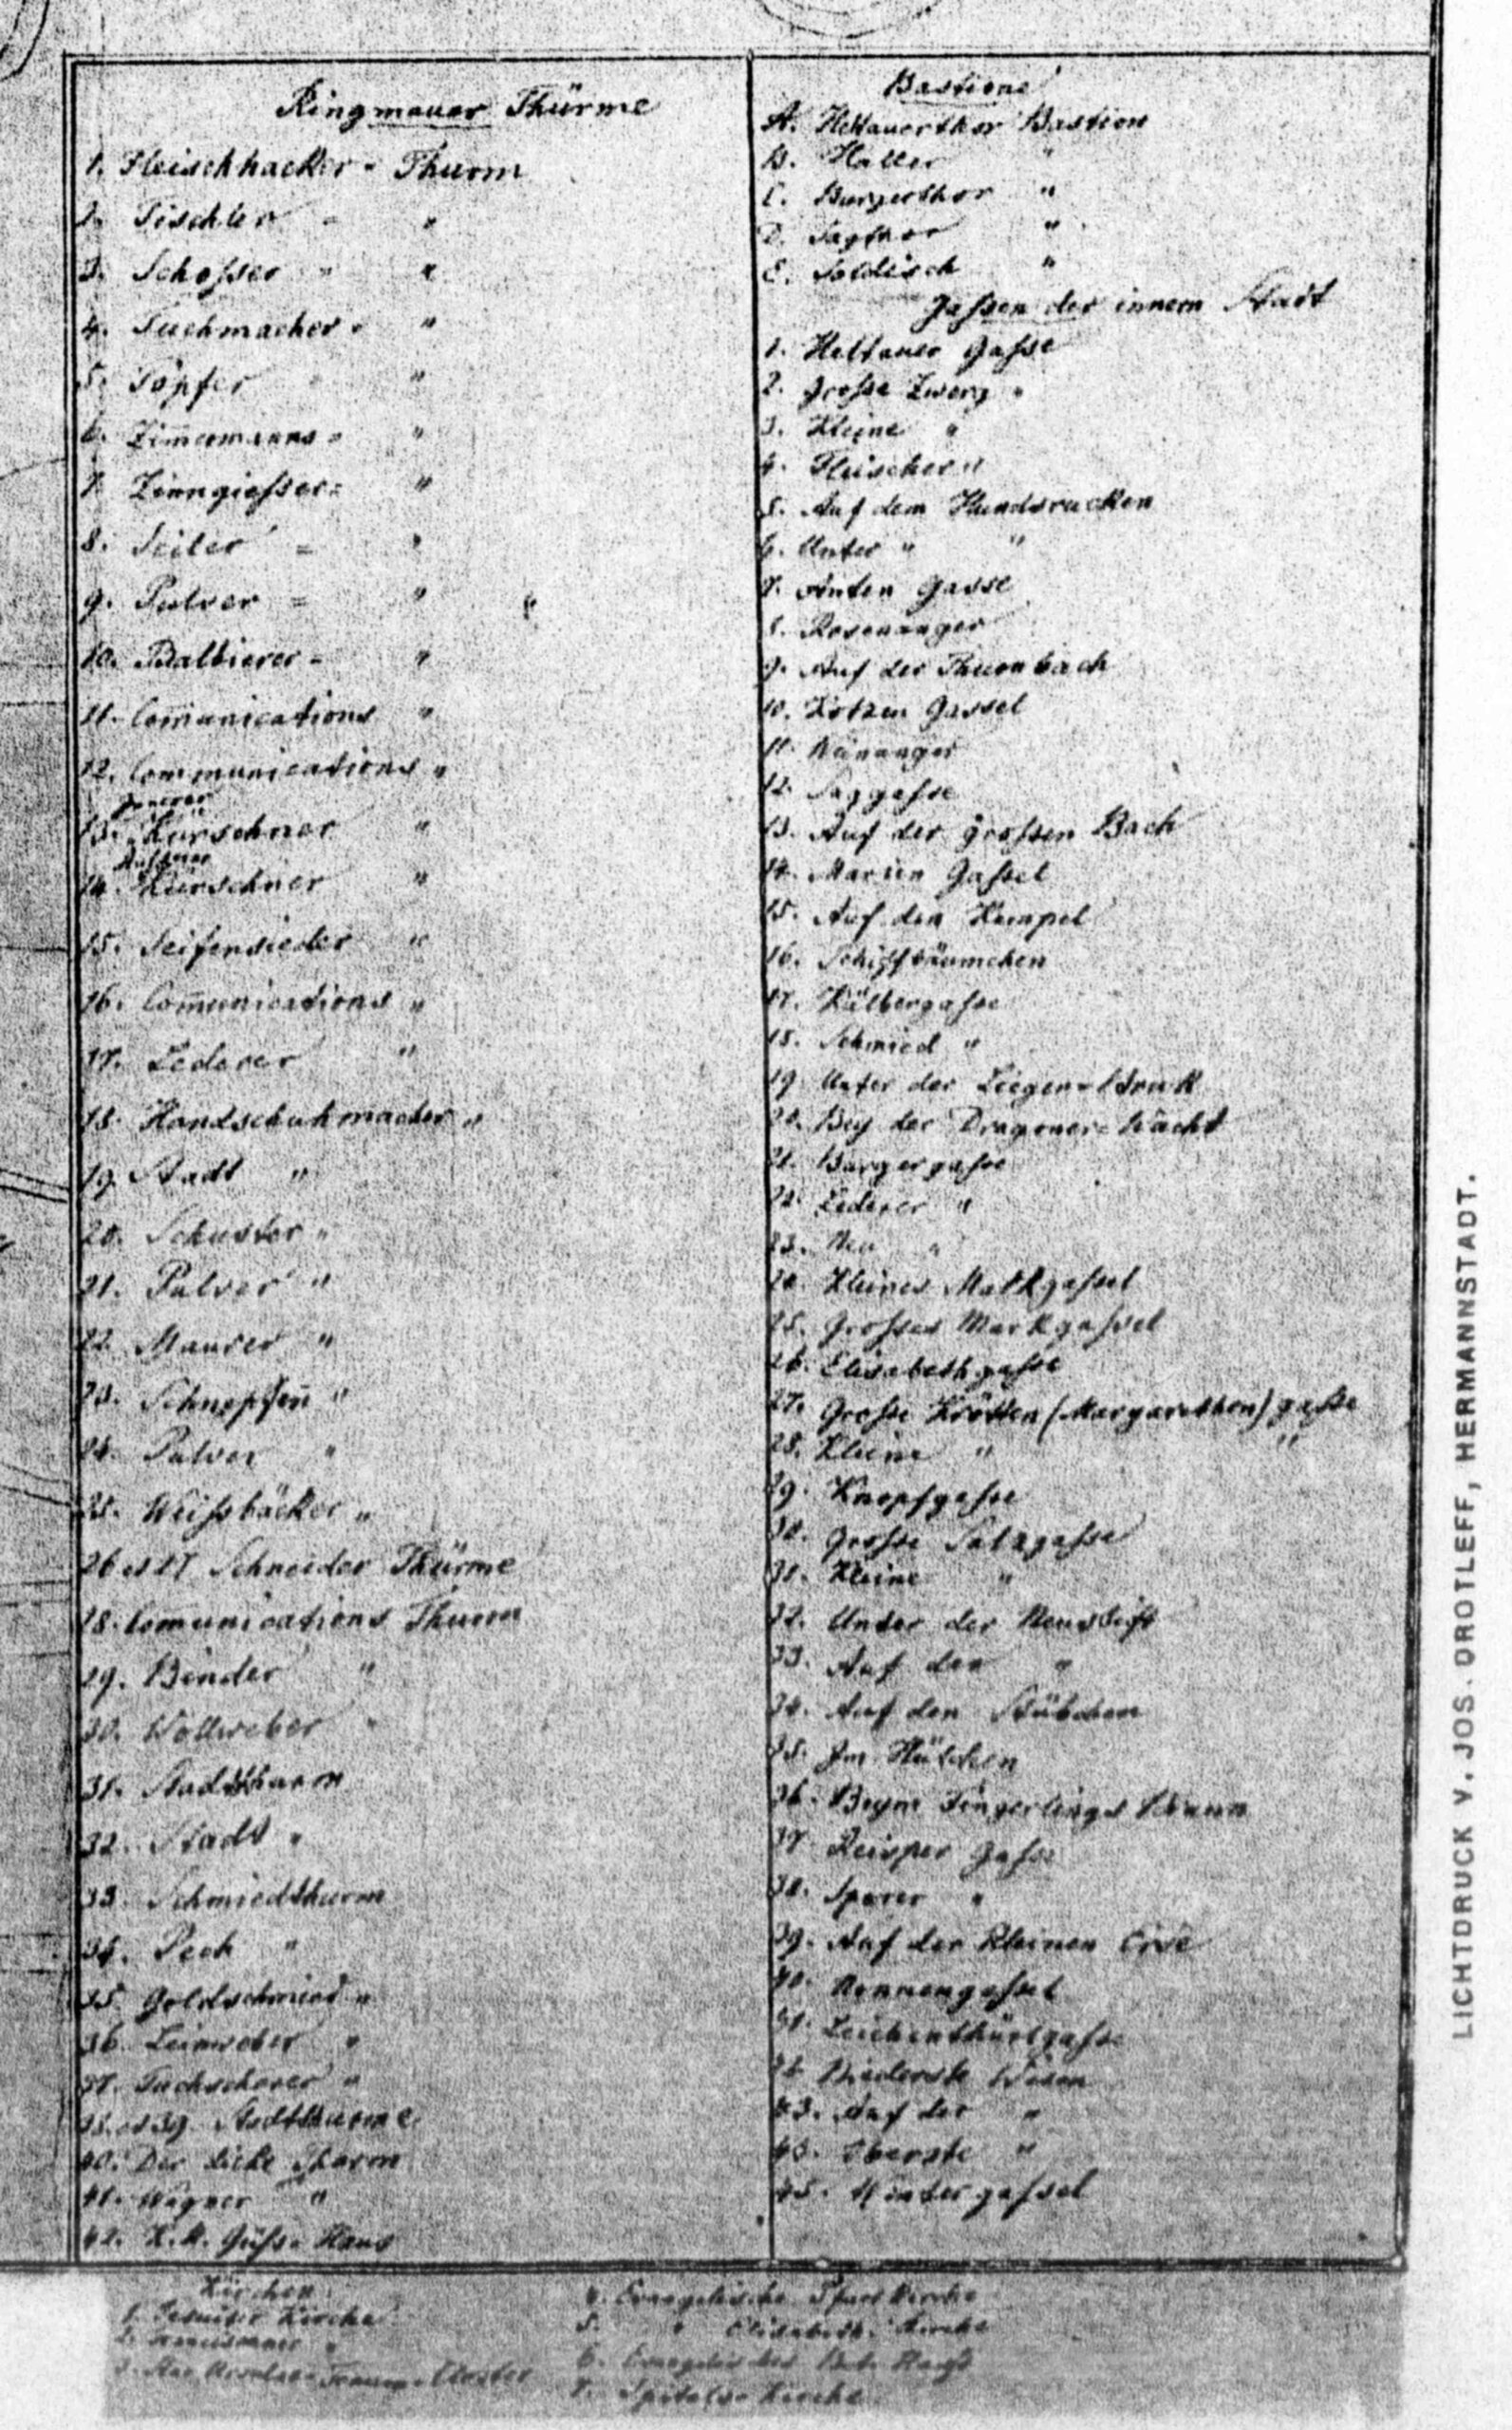 Ringmauer Thürme
1. Fleischhacker - Thurm
2. Tischler - "
3. Schosser - "
4. Tuchmacher - "
5. Töpfer "
6. Zim̅ermanns - "
7. Zinngiesser - "
8. Seiler = "
9. Pulver = "
10. Balbierer - "
11. Com̅unications "
12. Communications "
Innerer
13. Kürschner "
Äusserer
14. Kürschner "
15. Seifensieder "
16. Com̅unications "
17. Lederer "
18. Handschuhmacher "
19. Stadt "
20. Schuster "
21. Pulver "
22. Maurer "
23. "
24. Pulver "
25. Weissbäcker "
26 et 27 Schneider Thürme
28. Com̅unications Thurm
29. Binder "
30. Wollweber "
31. Stadtthurm
32. Stadt "
33. Schmiedthurm
34. Pech "
35. Goldschmied "
36. Leinweber "
37. Tuchscherer "
38. et 39. Stadtthürme
40. Der dicke Thurm
41. Wagner "
42. K. K. Haus
Bastione
A. Heltauerthor Bastion
B. Haller "
C. Burgerthor "
D. Sagthor "
E. Soldisch "
Gassen der innern Stadt
1. Heltauer Gasse
2. Grosse Zwerg "
3. Kleine "
4. Fleischer "
5. Auf dem Hundsrucken
6. Unter " "
7. Gasse
8. Rosenanger
9. Auf der Thurnbach
10. Kotzen Gassel
11. Weinanger
12. Saggasse
13. Auf der grossen Bach
14. Marien Gassel
15. Auf den Hempel
16. Schiffbäumchen
17. Kälbergasse
18. Schmied "
19. Unter der
20. Bey der Dragoner = Wacht
21. Burgergasse
22. Lederer "
23. Neu "
24. Kleines Markgassel
25. Grosses Markgassel
26. Elisabethgasse
27. Grosse Krötten (Margarethen) gasse
28. Kleine " "
29. Knopfgasse
30. Grosse Salzgasse
31. Kleine "
32. Unter der Neustift
33. Auf der "
34. Auf den Stübchen
35. Im Hütchen
36. Beym Fingerlings Brunn
37. Reisper Gasse
38. Sporer "
39. Auf der Kleinen Erde
40. Nonnengassel
41. Leichenthürlgasse
42. Niederste Wiesen
43. Auf der "
44. Oberste "
45. Wintergassel
Kirchen
1. Jesuiter Kirche
2. "
3. Kloster
4. Evangelische Pfarr Kirche
5. " Elisabeth. Kirche
6. Evangelisches Bet Haus
7. Spitals = Kirche
LICHTDRUCK V. JOS. DROTLEFF, HERMANNSTADT.